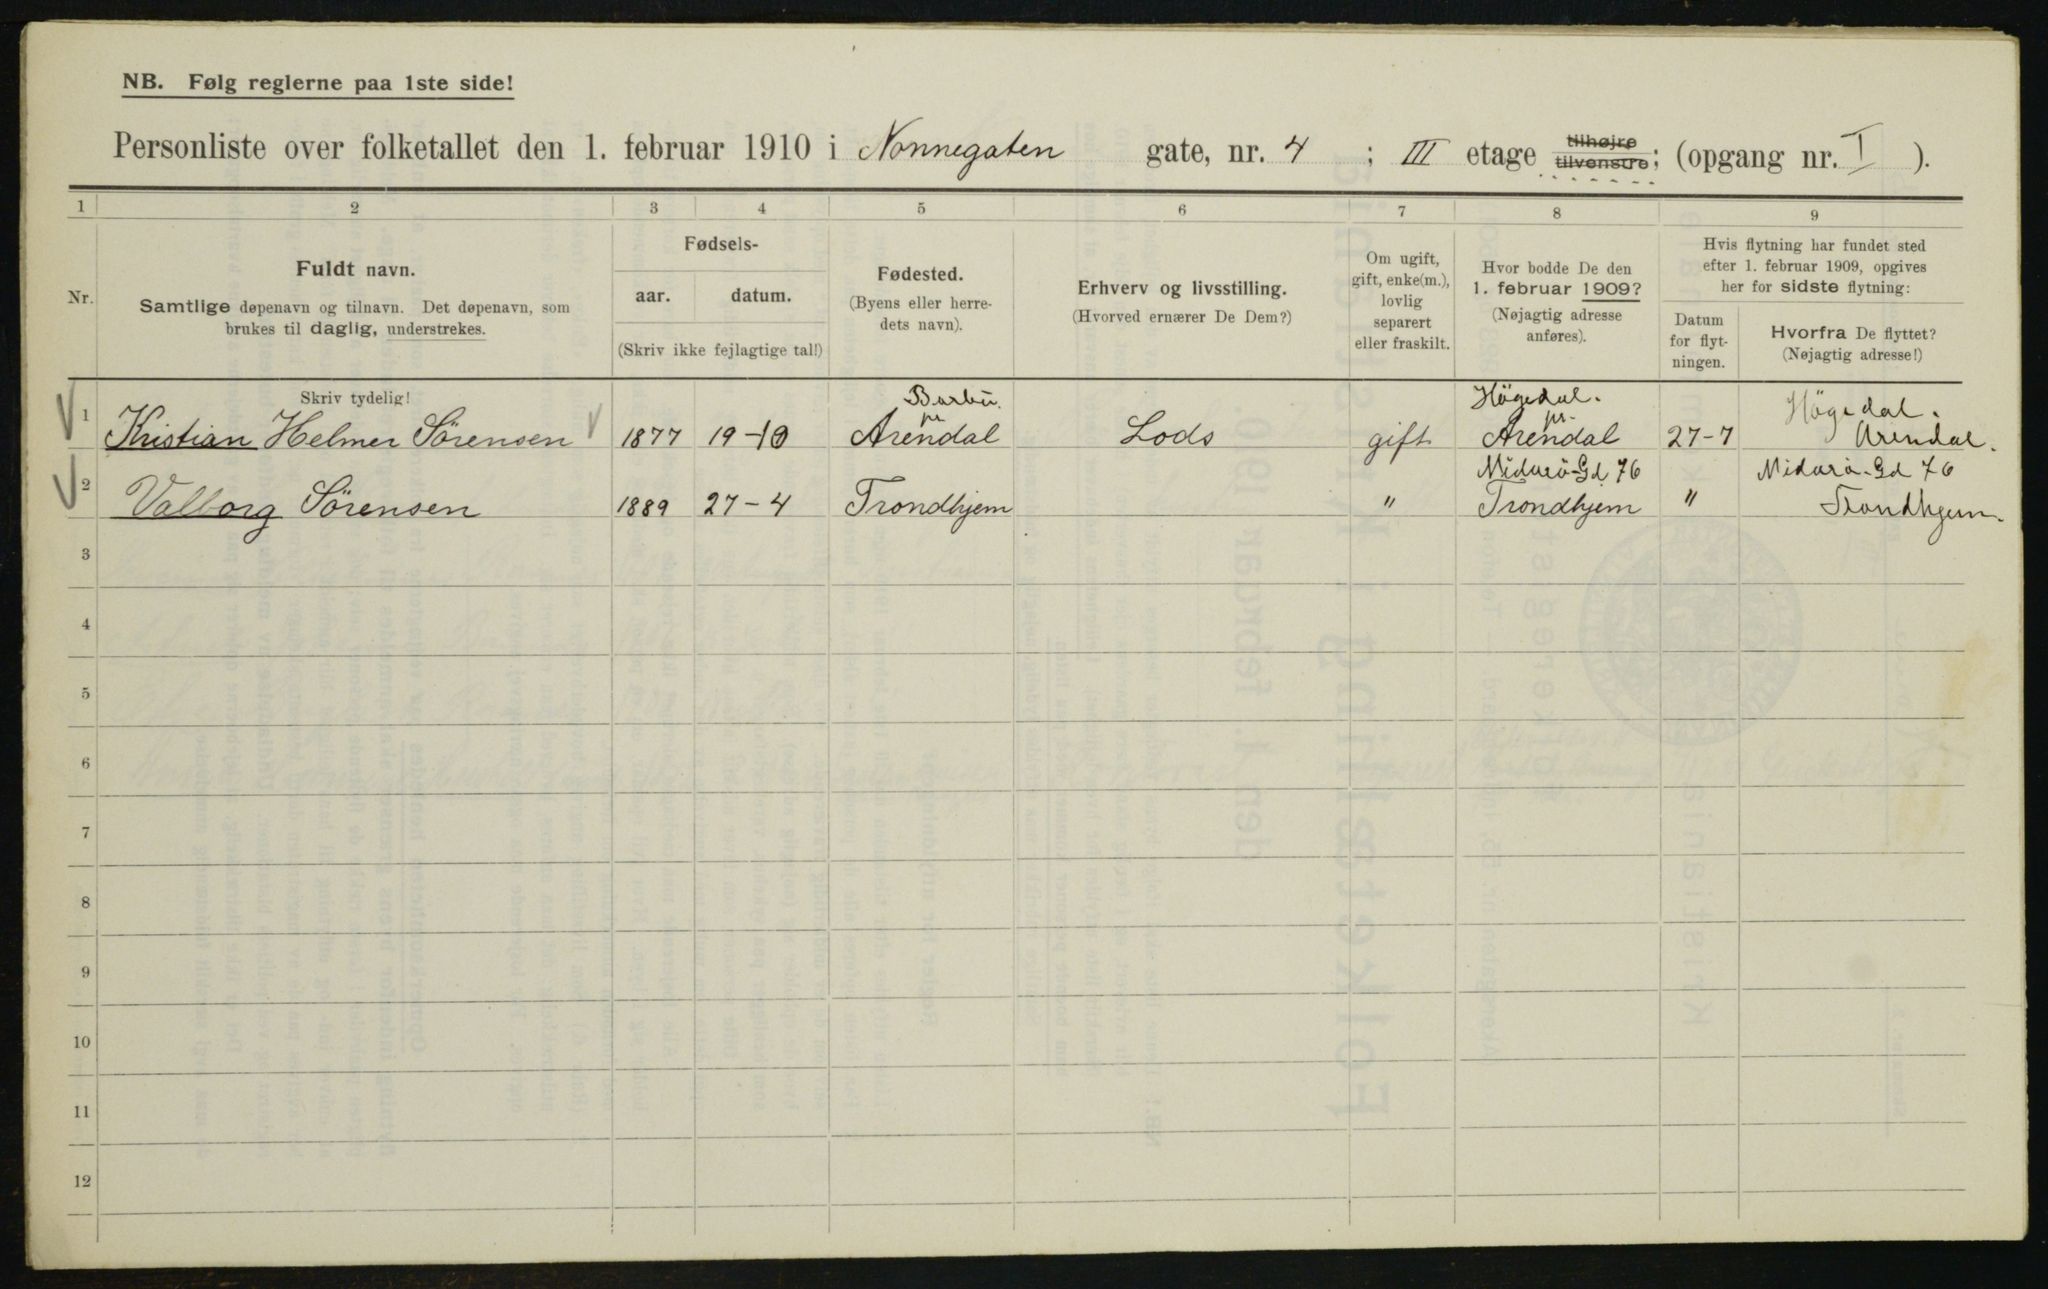 NB. Følg reglerne paa 1ste side!
Personliste over folketallet den 1. februar 1910 i Nonnegaten gate, nr. 4 ; III etage tilhøjre tilvenstre; (opgang nr. I ).
1 2 3 4 5 6 7 8 9
Nr.
Fuldt navn.
Samtlige døpenavn og tilnavn. Det døpenavn, som
brukes til daglig, understrekes.
Fødsels-
aar. datum.
(Skriv ikke fejlagtige tal!)
Fødested.
(Byens eller herre-
dets navn).
Erhverv og livsstilling.
(Hvorved ernærer De Dem?)
Om ugift,
gift, enke(m.),
lovlig
separert
eller fraskilt.
Hvor bodde De den
1. februar 1909?
(Nøjagtig adresse
anføres).
Hvis flytning har fundet sted
efter 1. februar 1909, opgives
her for sidste flytning:
Datum
for flyt-
ningen.
Hvorfra De flyttet?
(Nøjagtig adresse!)
Skriv tydelig!
Barbu. Högedal. Högedal.
1 Kristian Helmer Sörensen 1877 19-10 pr Arendal Lods gift pr. Arendal 27-7 Arendal.
Nidarö-Gd. 76 Nidarö-Gd 76
2 Valborg Sörensen 1889 27-4 Trondhjem " Trondhjem " Trondhjem.
3
4
5
6
7
8
9
10
11
12